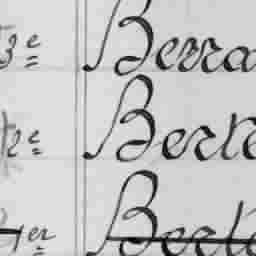 3e Berra
2e Berte
1er Berte